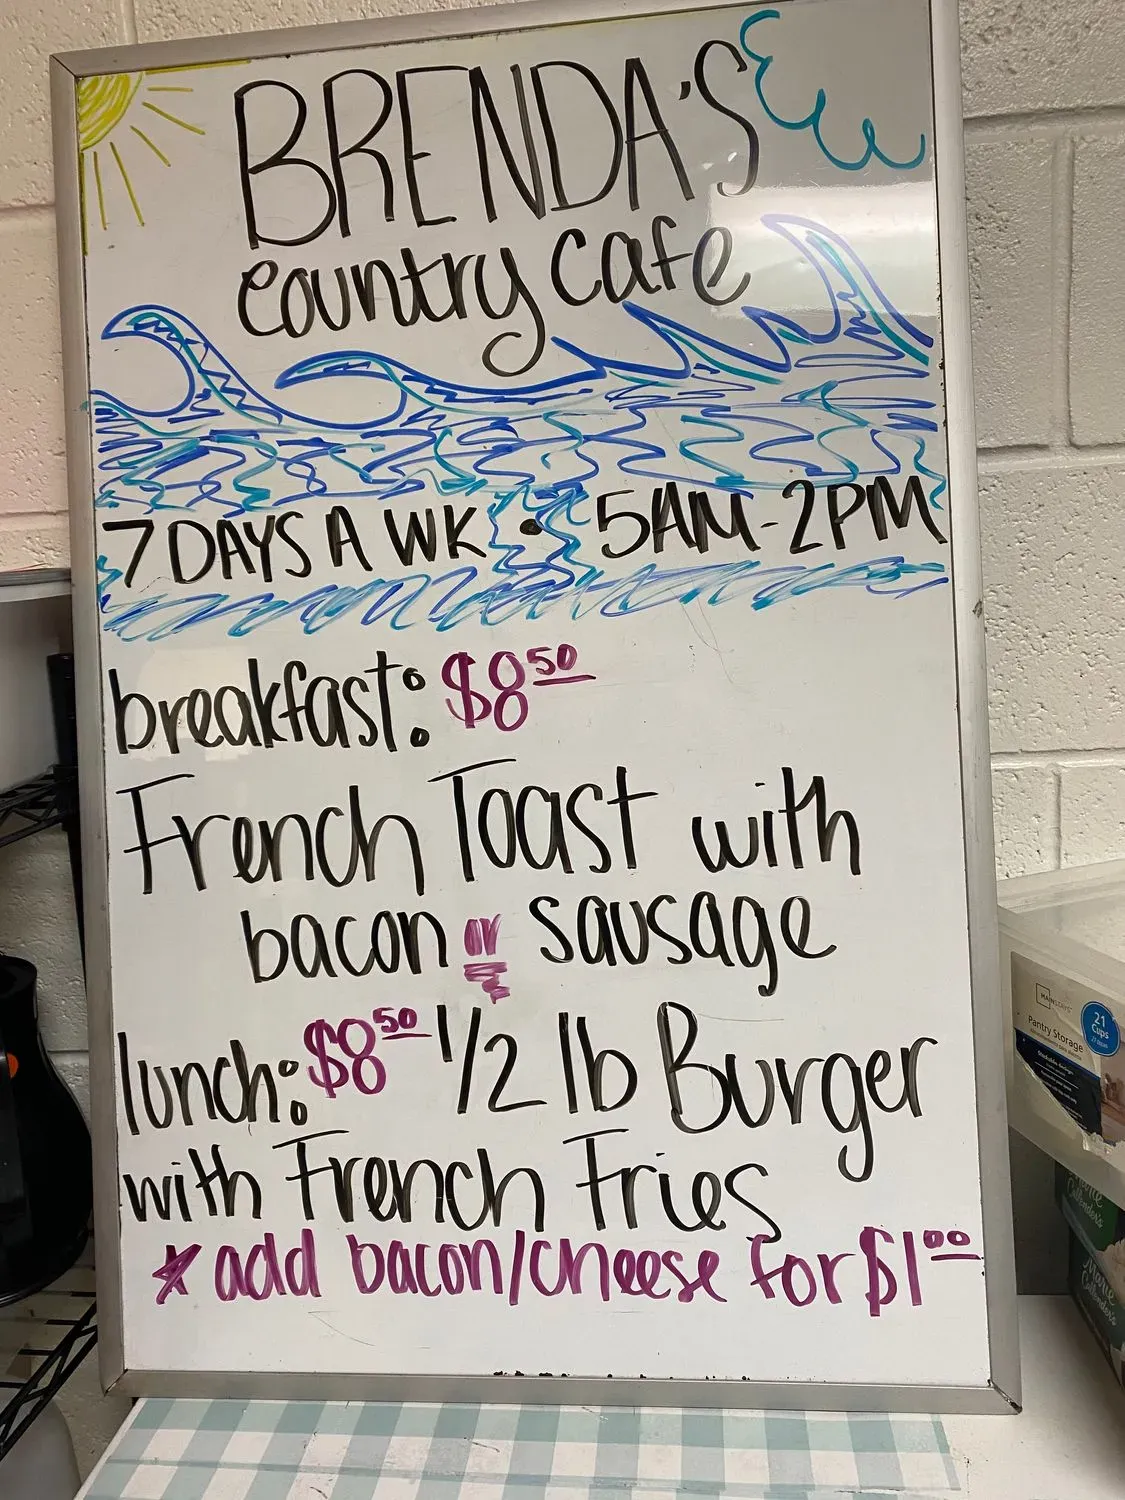 BRENDA'S
Country Cafe
7 DAYS A WK • 5AM-2PM
breakfast: $8.50
French Toast with
bacon or sausage
lunch: $8.50 1/2 lb Burger
with French Fries
* add bacon/cheese for $1.00
MAINSTAYS
Pantry Storage
21
Cups
Marie
Callender's
Marie
Callender's